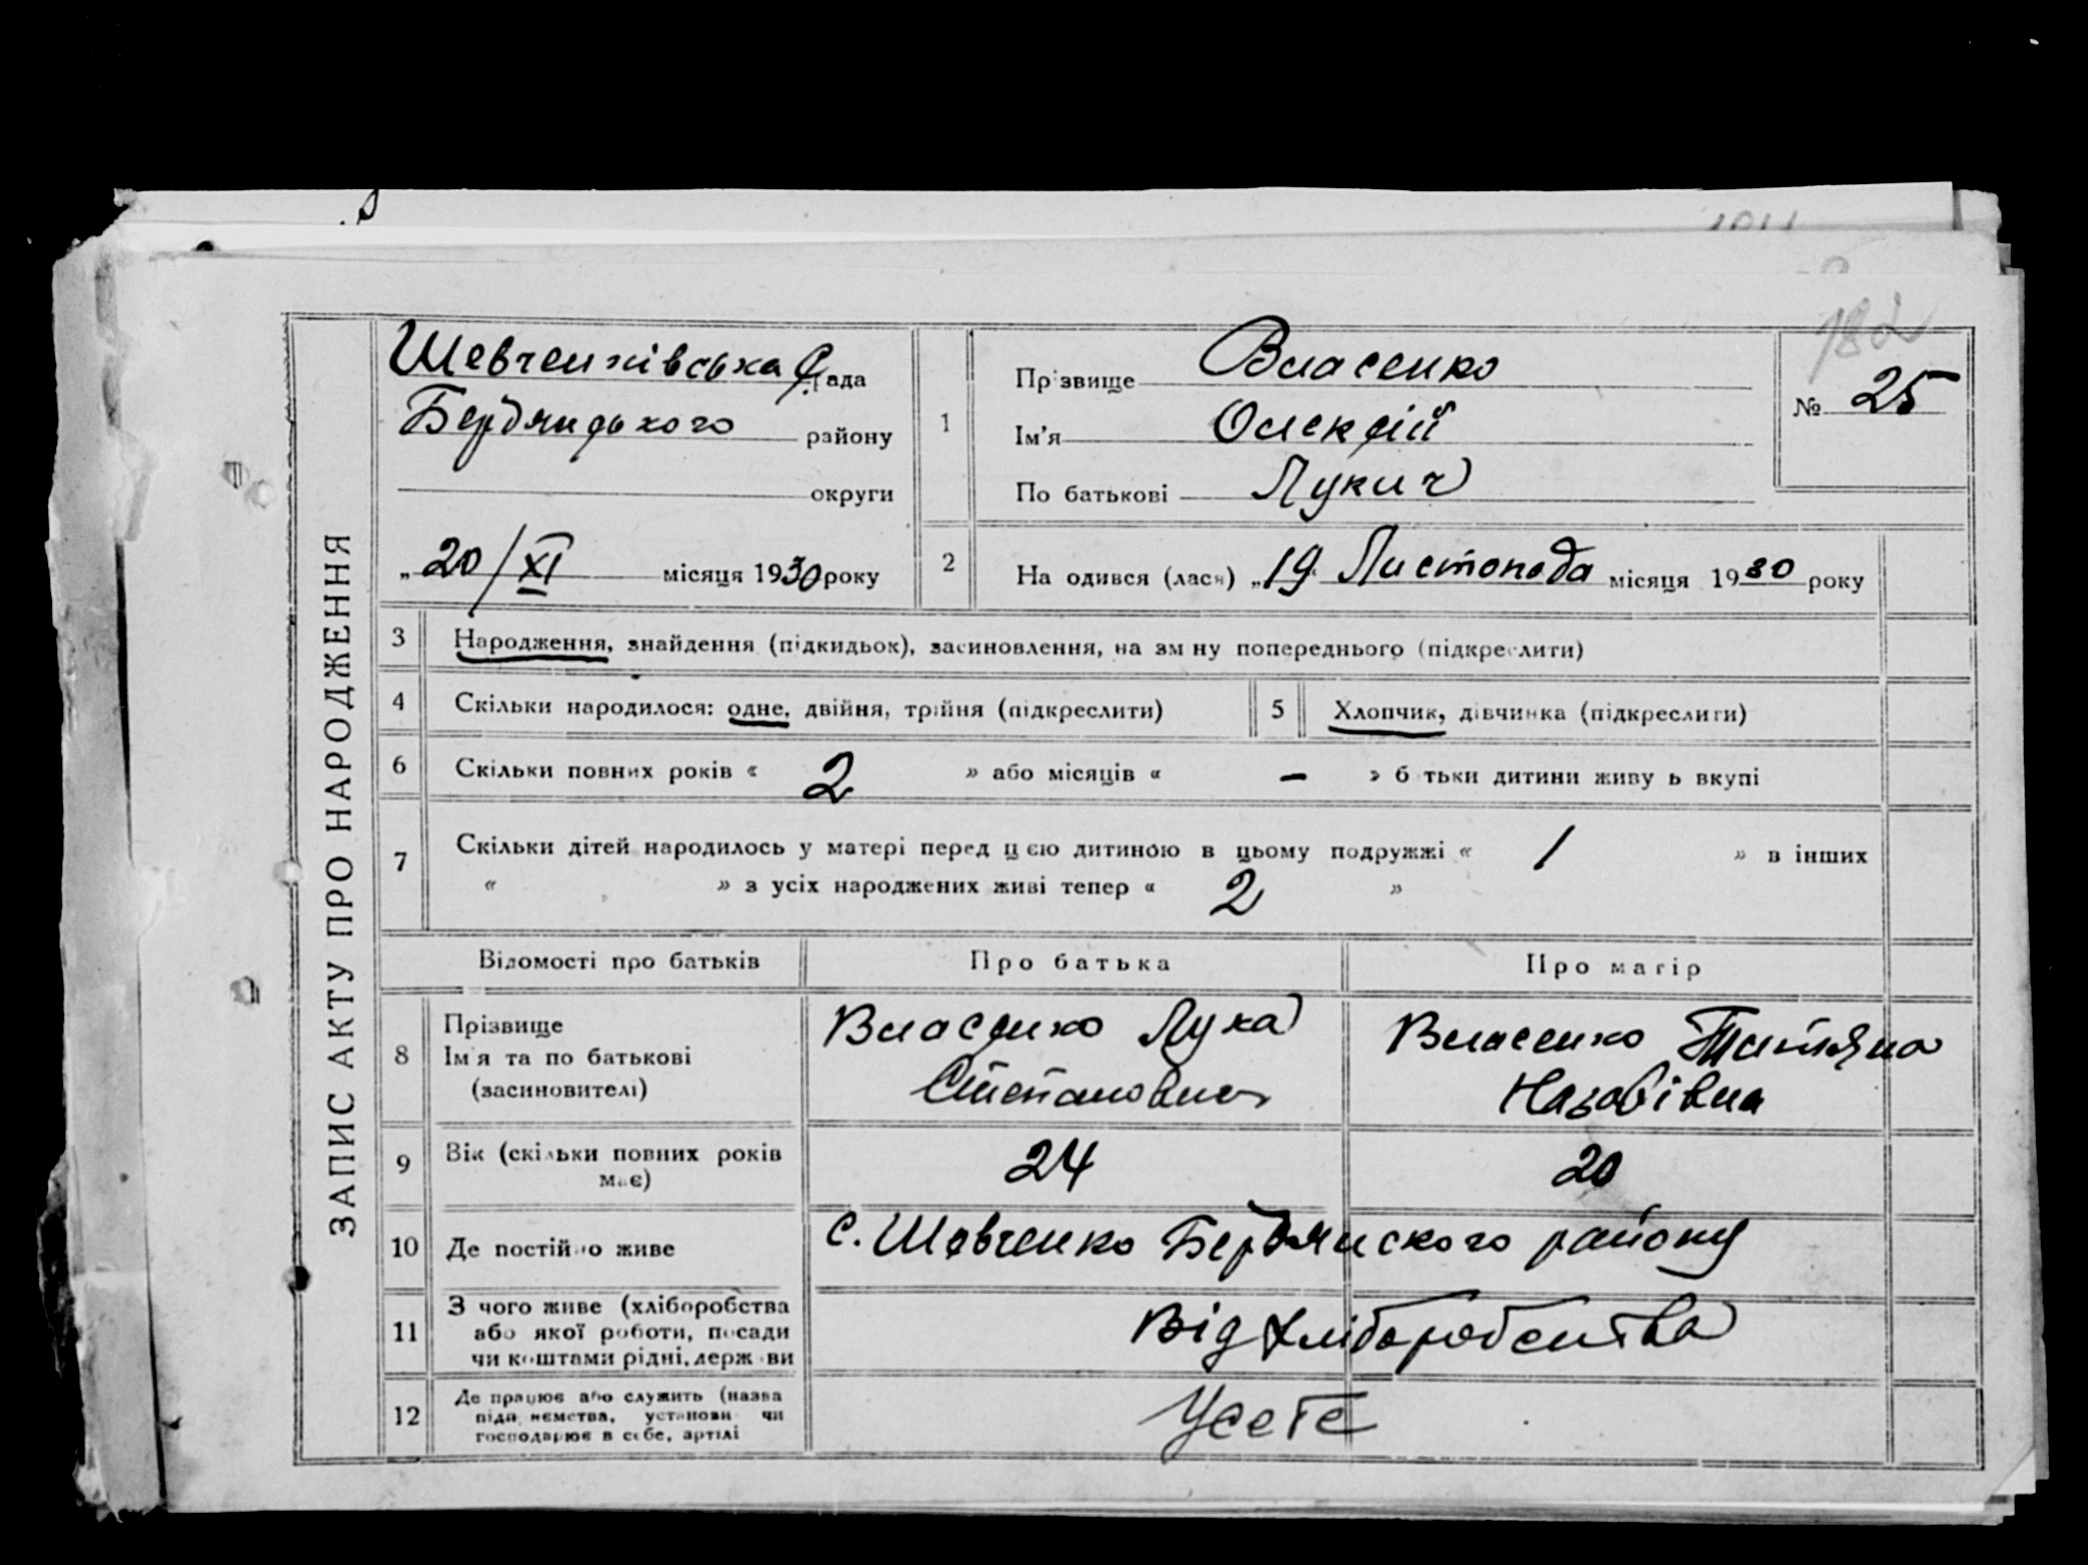 182
ЗАПИС АКТУ ПРО НАРОДЖЕННЯ
Шевченківська С. рада
Бердянського району
округи
„20/XI місяця 1930 року
1
Прізвище Власенко
Ім'я Олексій
По батькові Лукич
№ 25
2
Народився (лася) „19 Листопада місяця 1930 року
3 Народження, знайдення (підкидьок), засиновлення, на зміну попереднього (підкреслити)
4 Скільки народилося: одне, двійня, трійня (підкреслити) 5 Хлопчик, дівчинка (підкреслити)
6 Скільки повних років « 2 » або місяців « – » батьки дитини живуть вкупі
7 Скільки дітей народилось у матері перед цією дитиною в цьому подружжі « 1 » в інших
« » з усіх народжених живі тепер « 2 »
Відомості про батьків Про батька Про матір
8 Прізвище
Ім'я та по батькові
(засиновителі)
Власенко Лука
Степанович
Власенко Татяна
Назарівна
9 Вік (скільки повних років
має)
24 20
10 Де постійно живе с. Шевченко Бердянского району
11 З чого живе (хліборобства
або якої роботи, посади
чи коштами рідні, держави
Від хліборобства
12 Де працює або служить (назва
підприємства, установи чи
господарює в себе, артілі